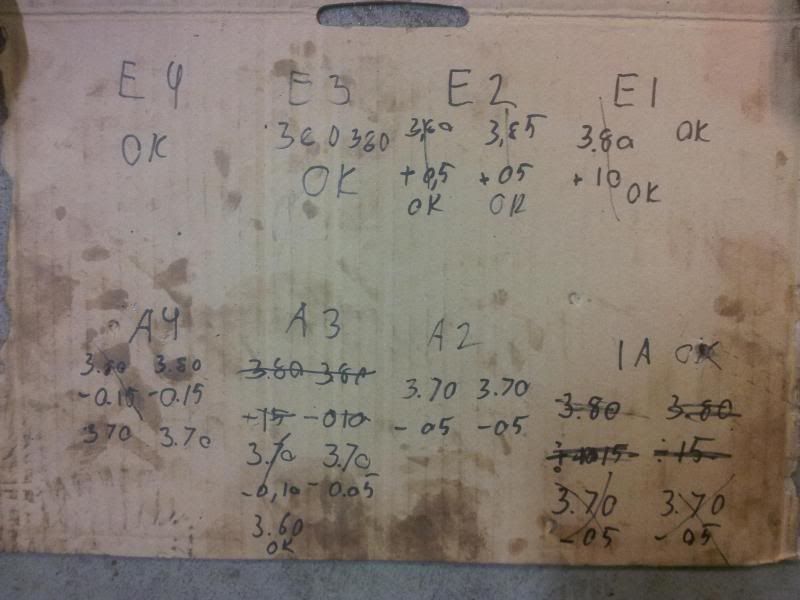 E4 E3 E2 E1
OK 360 380 3,80 3,85 3.80 OK
OK +0,5 +05 +10 OK
OK OK
A4 A3 A2 1A OK
3.80 3.80 3.80 3.80 3.70 3.70 3.80 3.80
-0.15 -0.15 +15 -010 -05 -05 15 -15
3.70 3.70 3.70 3.70 3.70 3.70
-0,10 -0.05 -05 -05
3.60
OK